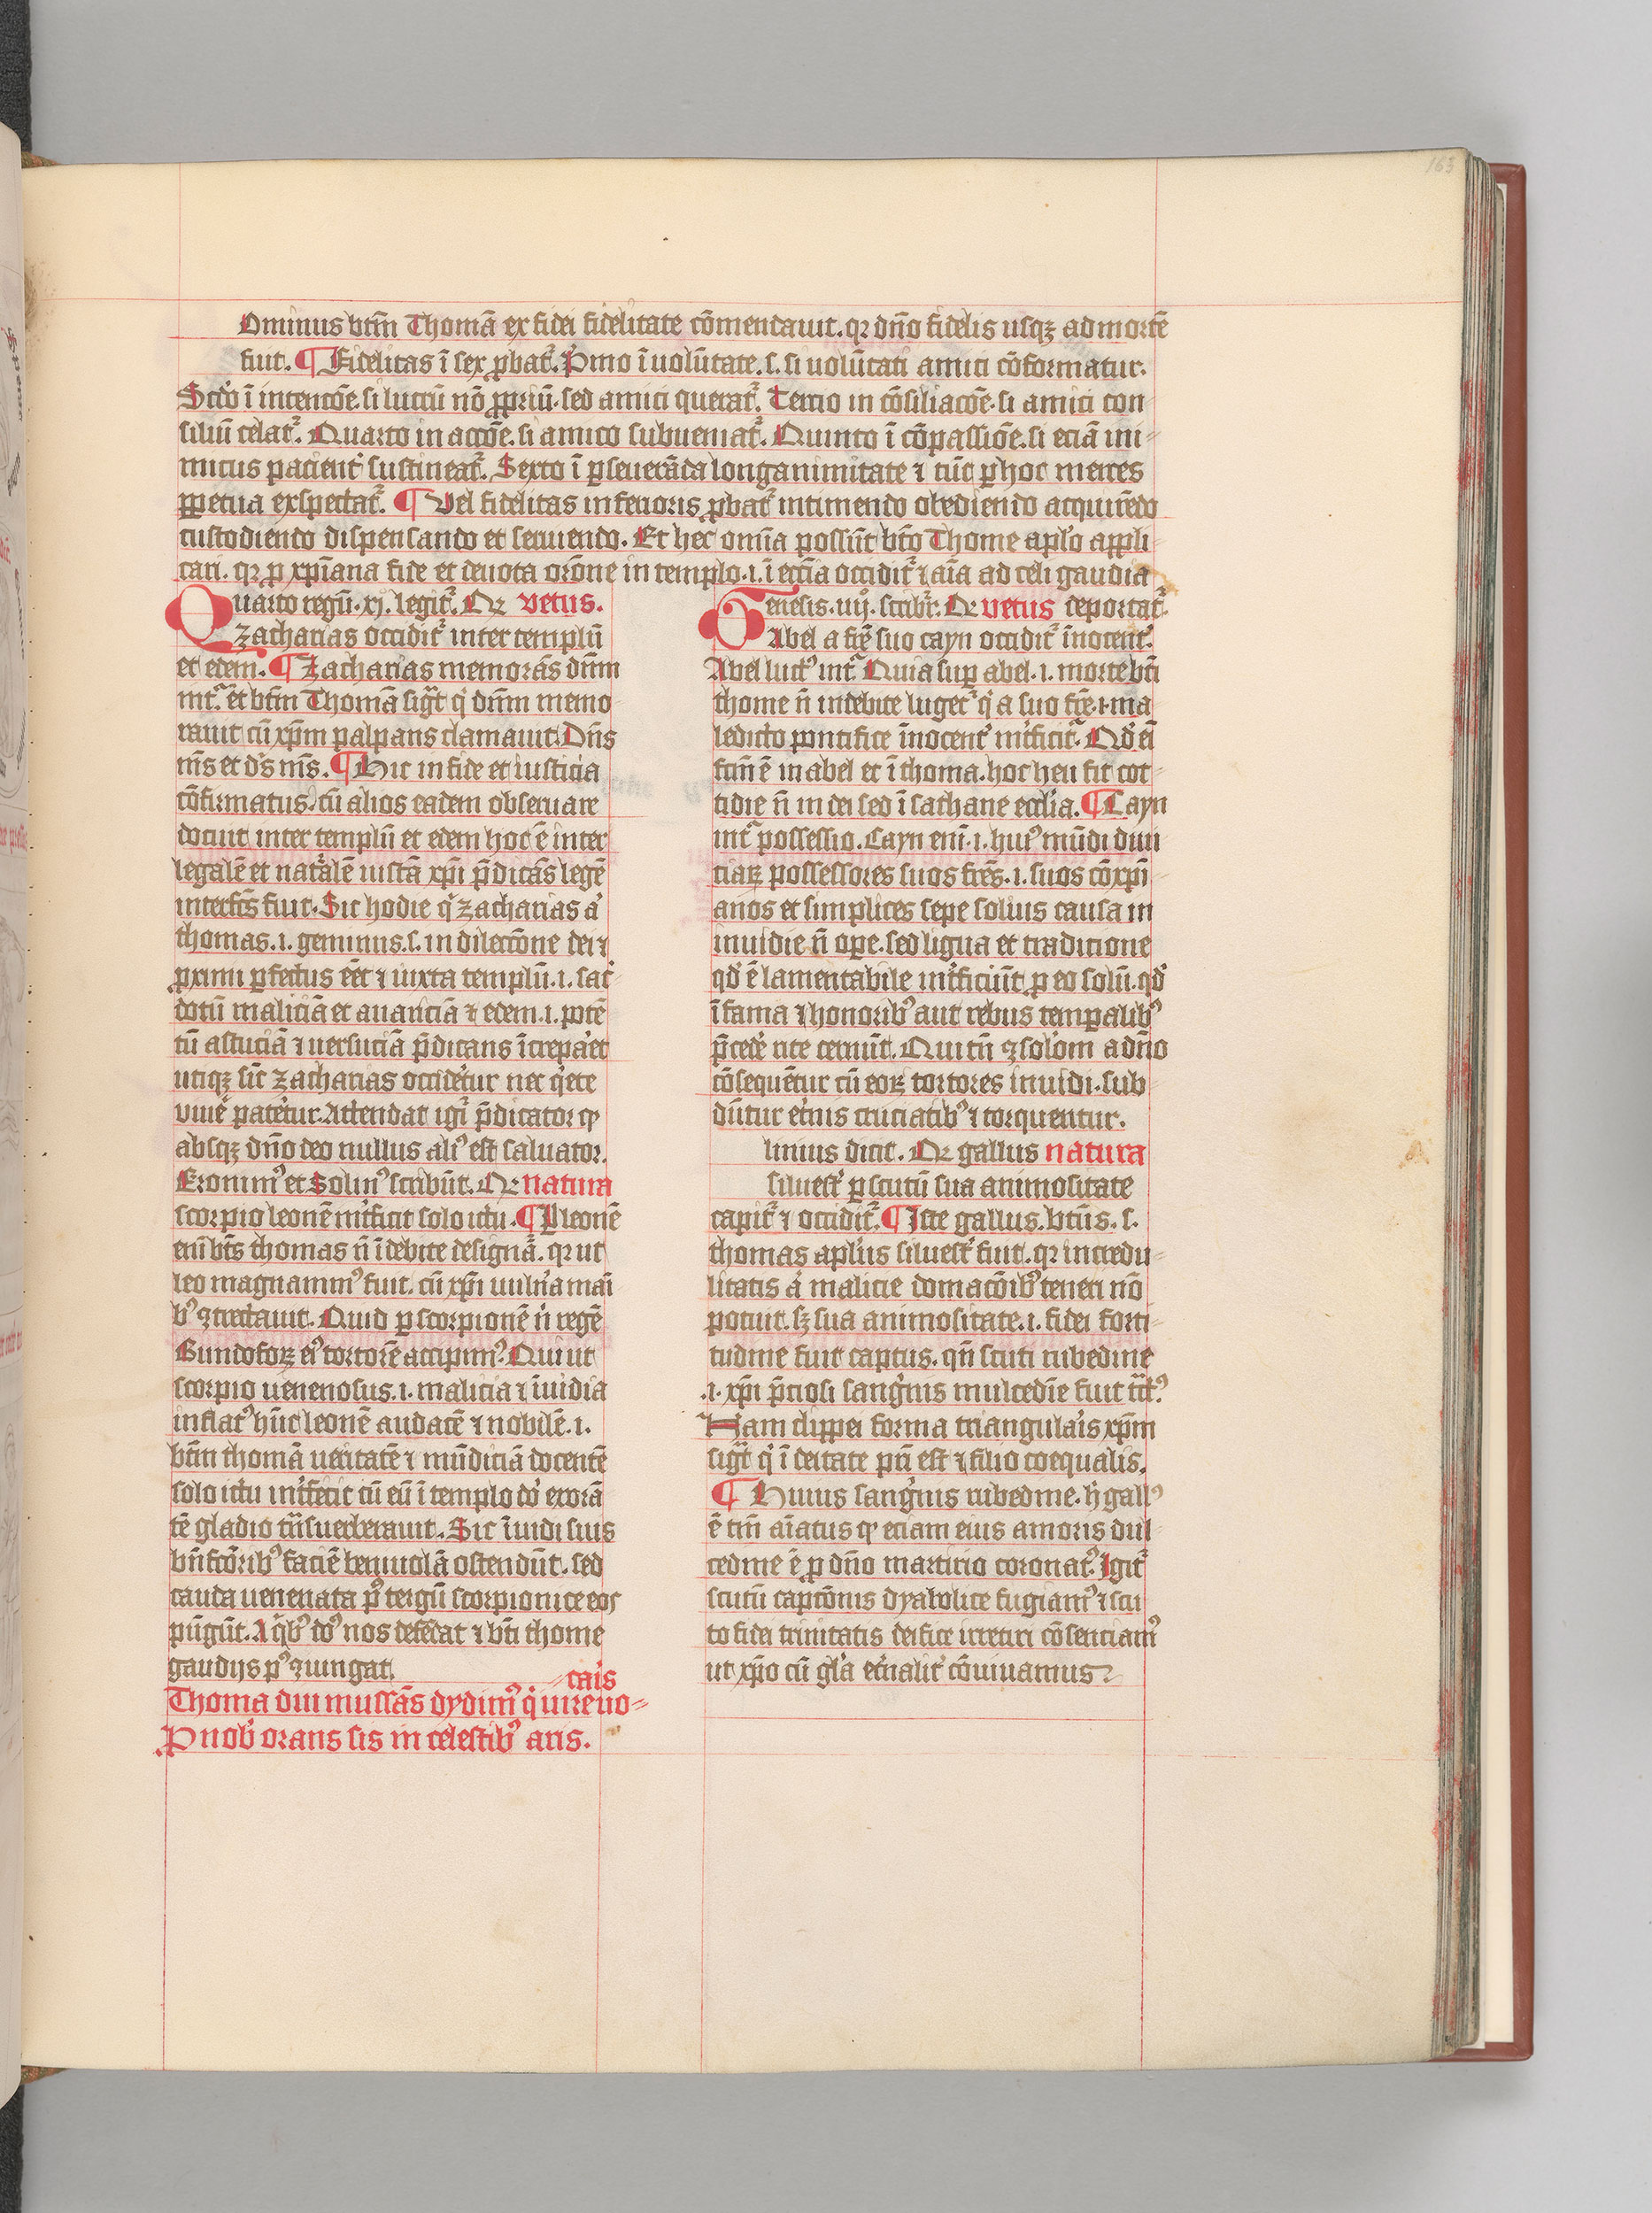 163
ominus btm̄ Thomā ex fidei fidelitate cōmendauit. qr dn̄o fidelis usqꝫ ad mortē
fuit. ¶ Fidelitas ī sex ꝓbat᷑. Pmo ī uolūtate. s. si uolūtati amici cōformatur.
Scd̓o ī intencōe. si lucrū nō ꝓpriū. sed amici querat᷑. Tercio in cōsiliacōe. si amici con
siliū celat᷑. Quarto in accōe. si amico subueniat᷑. Quinto ī cōpassiōe. si eciā ini
micus pacient̓ sustineat᷑. Sexto ī ꝑseuerāda longanimitate ⁊ tūc ꝑ hoc merces
ꝑpetua exspectat᷑. ¶ Vel fidelitas inferioris ꝓbat᷑ intimendo obediendo acquirēdo
custodiendo dispensando et seruiendo. Et hec om̄ia possūt bt̄o Thome apl̓o appli
cari. qr ꝑ xp̄iana fide et deuota orōne in templo. i. ī ecc̄ia occidit᷑ ⁊ aīa ad celi gaudia
Quarto regū. xj. legit᷑. Qr vetus.
Zacharias occidit᷑ inter templū
et edem. ¶ Zacharias memorās dn̄m
int᷑. et btm̄ Thomā sigt̄ q̓ dn̄m memo
rauit cū xp̄m palpans clamauit. Dn̄s
m̄s et d̓s m̄s. ¶ Hic in fide et iusticia
cōfirmatus. cū alios eadem obseruare
docuit inter templū et edem hoc ē inter
legalē et nat᷑alē iustā xp̄i p̄dicās legē
interfc̄s fuit. Sic hodie q̓ zacharias a̓
thomas. i. geminus. s. in dilectōne dei ⁊
ꝓximi ꝑfectus eēt ⁊ iuxta templū. i. sac̓
dotū maliciā et auariciā ⁊ edem. i. potē
tū astuciā ⁊ uersuciā p̄dicans īcrepa̓et
utiqꝫ sic̄ zacharias occide̓tur nec q̓ete
viue̓ pate̓tur. Attendat igi᷑ p̄dicator ꝙ
absqꝫ dn̄o deo nullus aliꝰ est saluator.
Eronimꝰ et Solinꝰ scribūt. Qr natura
scorpio leonē int̓ficit solo ictu. ¶ P leonē
enī bt̄s thomas n̄ īdebite designat᷑. qr ut
leo magnanimꝰ fuit. cū xp̄i uuln̓a mai
bꝰ ꝯtrectauit. Quid ꝑ scorpionē n̓ regē
Gundoforꝝ eiꝰ tortorē accipimꝰ. Qui ut
scorpio uenenosus. i. malicia ⁊ īuidia
inflatꝰ hūc leonē audacē ⁊ nobilē. i.
btm̄ thomā ueritatē ⁊ mūdiciā docentē
solo ictu int̓fecit cū eū ī templo do̓ exorā
tē gladio trāsuerberauit. Sic īuidi suis
bn̄fcōribꝰ faciē beniuolā ostendūt. sed
cauda uenenata pꝰ tergū scorpionice eos
pūgūt. A q̓bꝰ dꝰ nos defendat ⁊ bt̄i thome
gaudijs pꝰ ꝯiungat.
cais
Thoma dui mussās dydimꝰ q̓ uire uo
P nob̓ orans sis in celestibꝰ aris.
Genesis. iiij. scribit᷑. Qr vetus deportat᷑.
Abel a frē suo cayn occidit᷑ īnocent̓.
Abel luctꝰ int᷑. Quia suꝑ abel. i. morte bt̄i
thome n̄ indebite luget᷑ q̓ a suo frē. i. ma
ledicto pontifice īnocent̓ int̓ficit᷑. Qd̓ eī
fcm̄ ē in abel et ī thoma. hoc heu fit cot
tidie n̄ in dei sed ī sathane eccl̓ia. ¶ Cayn
int᷑ possessio. Cayn enī. i. huiꝰ mūdi diui
ciaꝝ possessores suos frēs. i. suos cōxp̄i
anos et simplices sepe solius causa in
inuidie n̄ ope. sed ligua et tradicione
qd̓ ē lamentabile int̓ficiūt ꝑ eo solū. qd̓
ī fama ⁊ honoribꝰ aut rebus temꝑalibꝰ
p̄cede̓ rite cernūt. Qui tn̄ ꝯsolōm a dn̄o
cōsequētur cū eoꝝ tortores inuidi. sub
dūtur et̓nis cruciatibꝰ ⁊ torquentur.
linius dicit. Qr gallus natura
siluest̓ ꝑ scutū sua animositate
capit᷑ ⁊ occidit᷑. ¶ Iste gallus. bt̄us. s.
thomas apl̓us siluest̓ fuit. qr incredu
litatis a̓ malicie domacōibꝰ teneri nō
potuit. sꝫ sua animositate. i. fidei forti
tudine fuit captus. qn̄ scuti rubedine
.i. xp̄i p̄ciosi sang̓nis mulcedīe fuit tc̄tꝰ
Nam clippei forma triangula̓is xp̄m
sigt̄ q̓ ī deitate pr̄i est ⁊ filio coequalis.
¶ Huius sang̓nis rubedine. h̓ gallꝰ
ē tm̄ aīatus ꝙ eciam eius amoris dul
cedine ē ꝑ dn̄o martirio coronatꝰ. Igit᷑
scutū captōnis dyabolice fugiamꝰ ⁊ scu
to fidei trinitatis deifice irretiri cōsenciamꝰ
ut xp̄o cū gl̓a et̓nalit̓ cōuiuamus